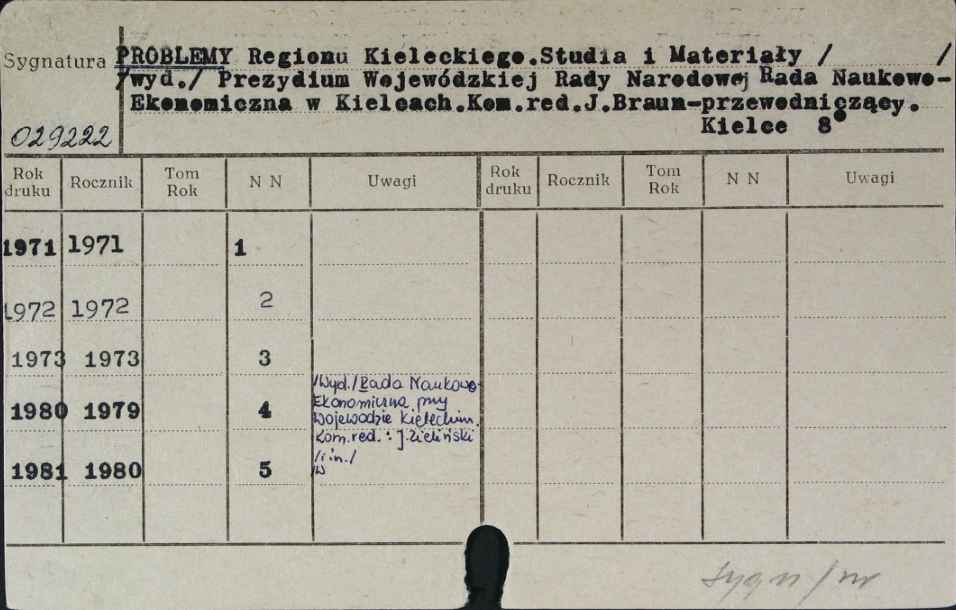 Sygnatura PROBLEMY Regionu Kieleckiego.Studia i Materiały / /
/wyd./ Prezydium Wojewódzkiej Rady Narodowej Rada Naukowo-
Ekonomiczna w Kielcach.Kom.red.J.Braun-przewodniczący.
029222 Kielce 8°
Rok druku Rocznik Tom Rok N N Uwagi Rok druku Rocznik Tom Rok N N Uwagi
1971 1971 1
1972 1972 2
1973 1973 3
/Wyd./Rada Naukowo-
1980 1979 4 Ekonomiczna przy
Wojewodzie Kieleckim.
Kom.red.: J.Zieliński
1981 1980 5 /i in./
Sygn/nr